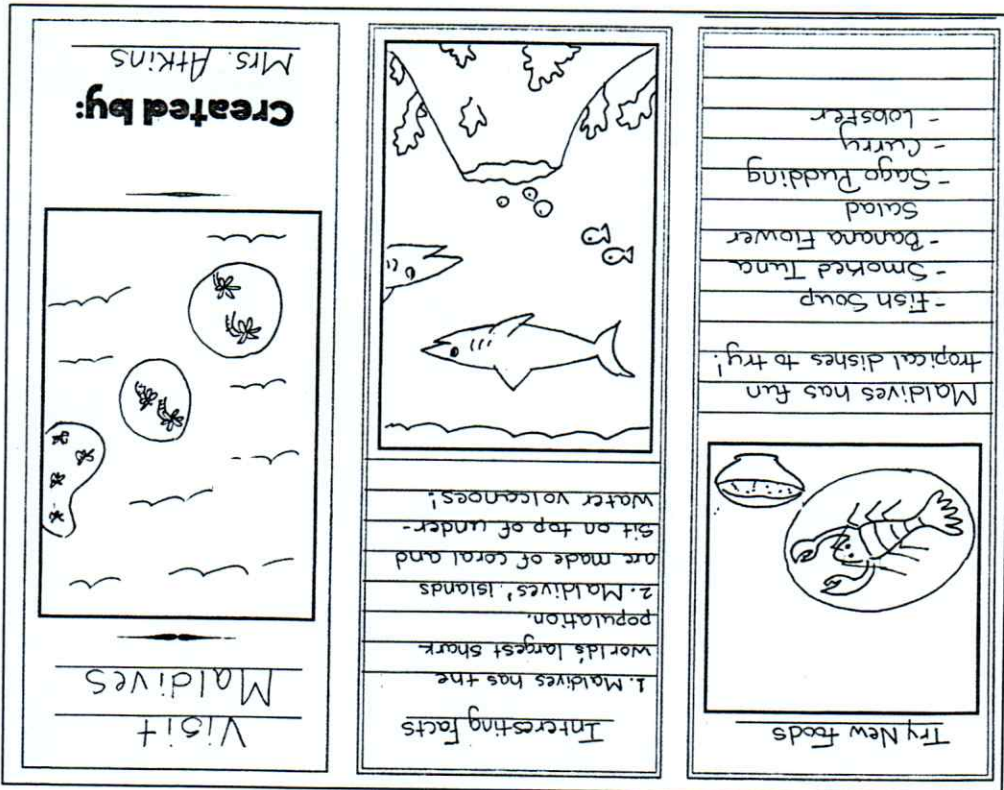 Try New Foods
Maldives has fun
tropical dishes to try!
- Fish Soup
- Smoked Tuna
- Banana Flower
Salad
- Sago Pudding
- Curry
- Lobster
Interesting Facts
1. Maldives has the
world's largest shark
population.
2. Maldives' islands
are made of coral and
sit on top of under-
water volcanoes!
Visit
Maldives
Created by:
Mrs. Atkins